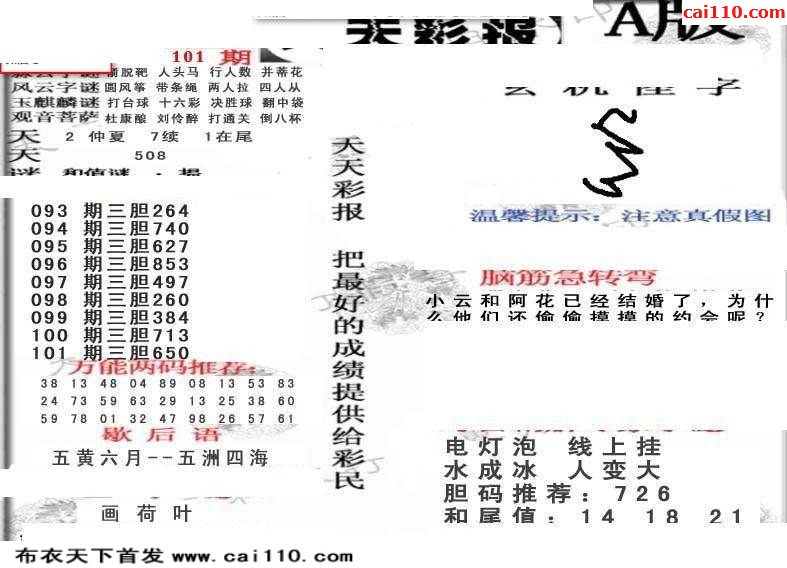 cai110.com
天彩报
A版
101 期
箭脱靶 人头马 行人数 并蒂花
风云字谜 圆风筝 带条绳 两人拉 四人从
玉麒麟谜 打台球 十六彩 决胜球 翻中袋
观音菩萨 杜康酿 刘伶醉 打通关 倒八杯
天 2 仲夏 7续 1在尾
天 508
天天彩报 把最好的成绩提供给彩民
温馨提示: 注意真假图
093 期三胆264
094 期三胆740
095 期三胆627
096 期三胆853
097 期三胆497
098 期三胆260
099 期三胆384
100 期三胆713
101 期三胆650
万能两码推荐:
38 13 48 04 89 08 13 53 83
24 73 59 63 29 13 25 38 60
59 78 01 32 47 98 26 57 61
歇后语
五黄六月--五洲四海
画荷叶
脑筋急转弯
小云和阿花已经结婚了，为什
么他们还偷偷摸摸的约会呢？
电灯泡 线上挂
水成冰 人变大
胆码推荐：726
和尾值：14 18 21
布衣天下首发 www.cai110.com